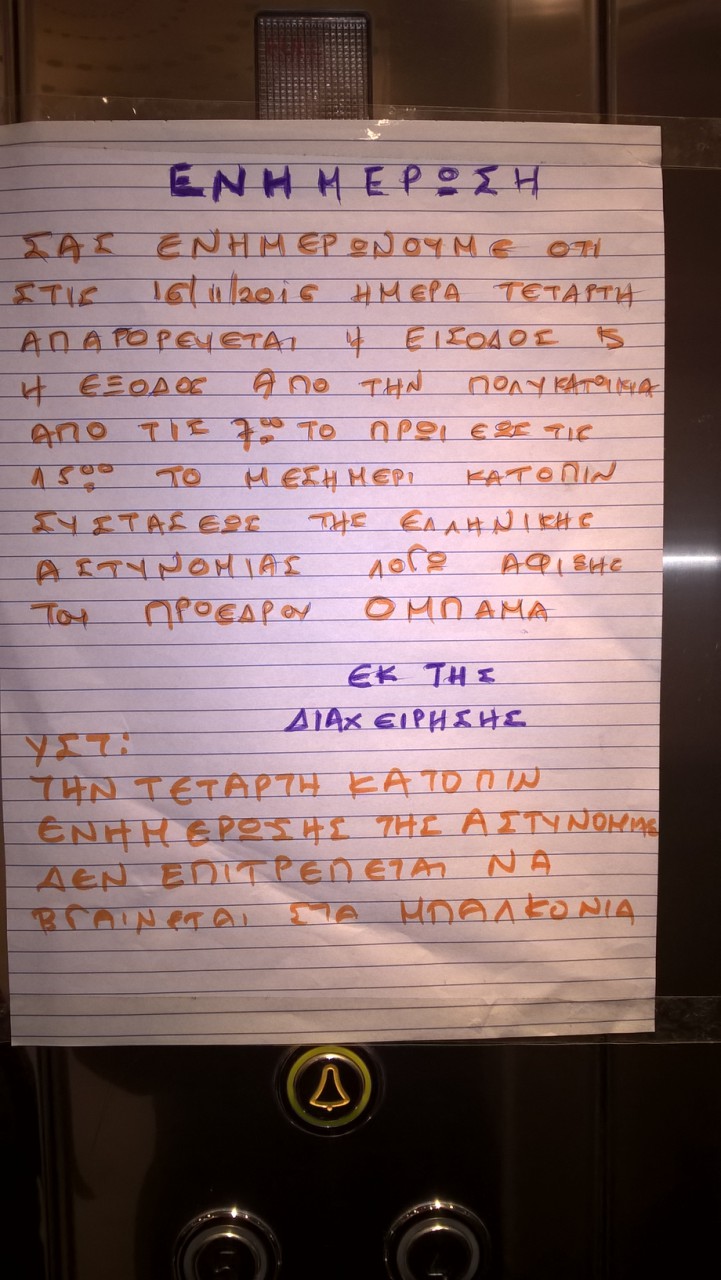 ΕΝΗΜΕΡΩΣΗ
ΣΑΣ ΕΝΗΜΕΡΩΝΟΥΜΕ ΟΤΙ
ΣΤΙΣ 16/11/2016 ΗΜΕΡΑ ΤΕΤΑΡΤΗ
ΑΠΑΓΟΡΕΥΕΤΑΙ Η ΕΙΣΟΔΟΣ
Η ΕΞΟΔΟΣ ΑΠΟ ΤΗΝ ΠΟΛΥΚΑΤΟΙΚΙΑ
ΑΠΟ ΤΙΣ 7:00 ΤΟ ΠΡΩΙ ΕΩΣ ΤΙΣ
15:00 ΤΟ ΜΕΣΗΜΕΡΙ ΚΑΤΟΠΙΝ
ΣΥΣΤΑΣΕΩΣ ΤΗΣ ΕΛΛΗΝΙΚΗΣ
ΑΣΤΥΝΟΜΙΑΣ ΛΟΓΩ ΑΦΙΞΗΣ
ΤΟΥ ΠΡΟΕΔΡΟΥ ΟΜΠΑΜΑ
ΕΚ ΤΗΣ
ΔΙΑΧΕΙΡΗΣΗΣ
ΥΣΤ:
ΤΗΝ ΤΕΤΑΡΤΗ ΚΑΤΟΠΙΝ
ΕΝΗΜΕΡΩΣΗΣ ΤΗΣ ΑΣΤΥΝΟΜΙΑΣ
ΔΕΝ ΕΠΙΤΡΕΠΕΤΑΙ ΝΑ
ΒΓΑΙΝΕΤΑΙ ΣΤΑ ΜΠΑΛΚΟΝΙΑ